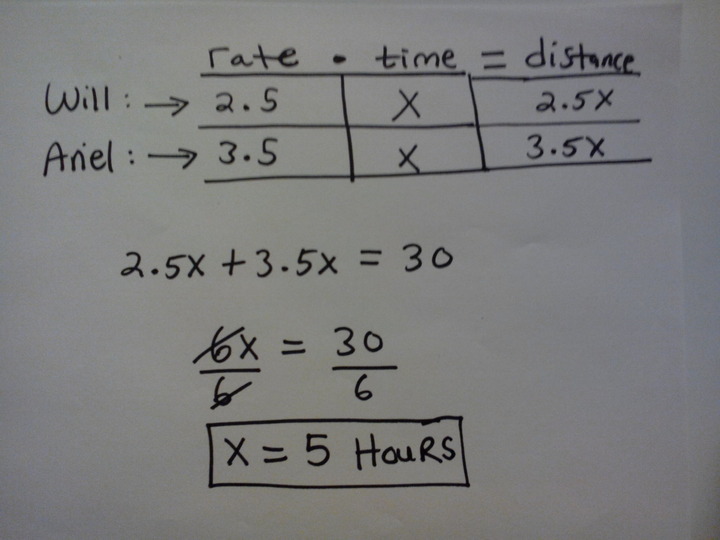 rate • time = distance
Will: → 2.5 X 2.5X
Ariel: → 3.5 X 3.5X
2.5X + 3.5X = 30
6X = 30
6 6
X = 5 HOURS